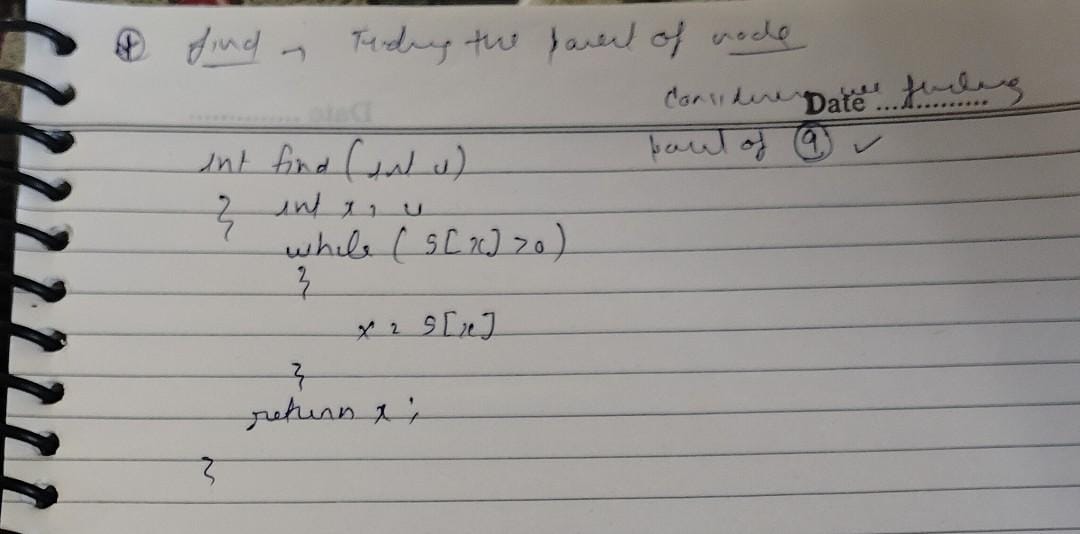 ⊕ find → Finding the parent of node
Considering we finding
Date ..................
parent of ⑨ ✓
int find (int u)
{ int x = u
while ( S[x] > 0 )
{
x = S[x]
}
return x ;
}